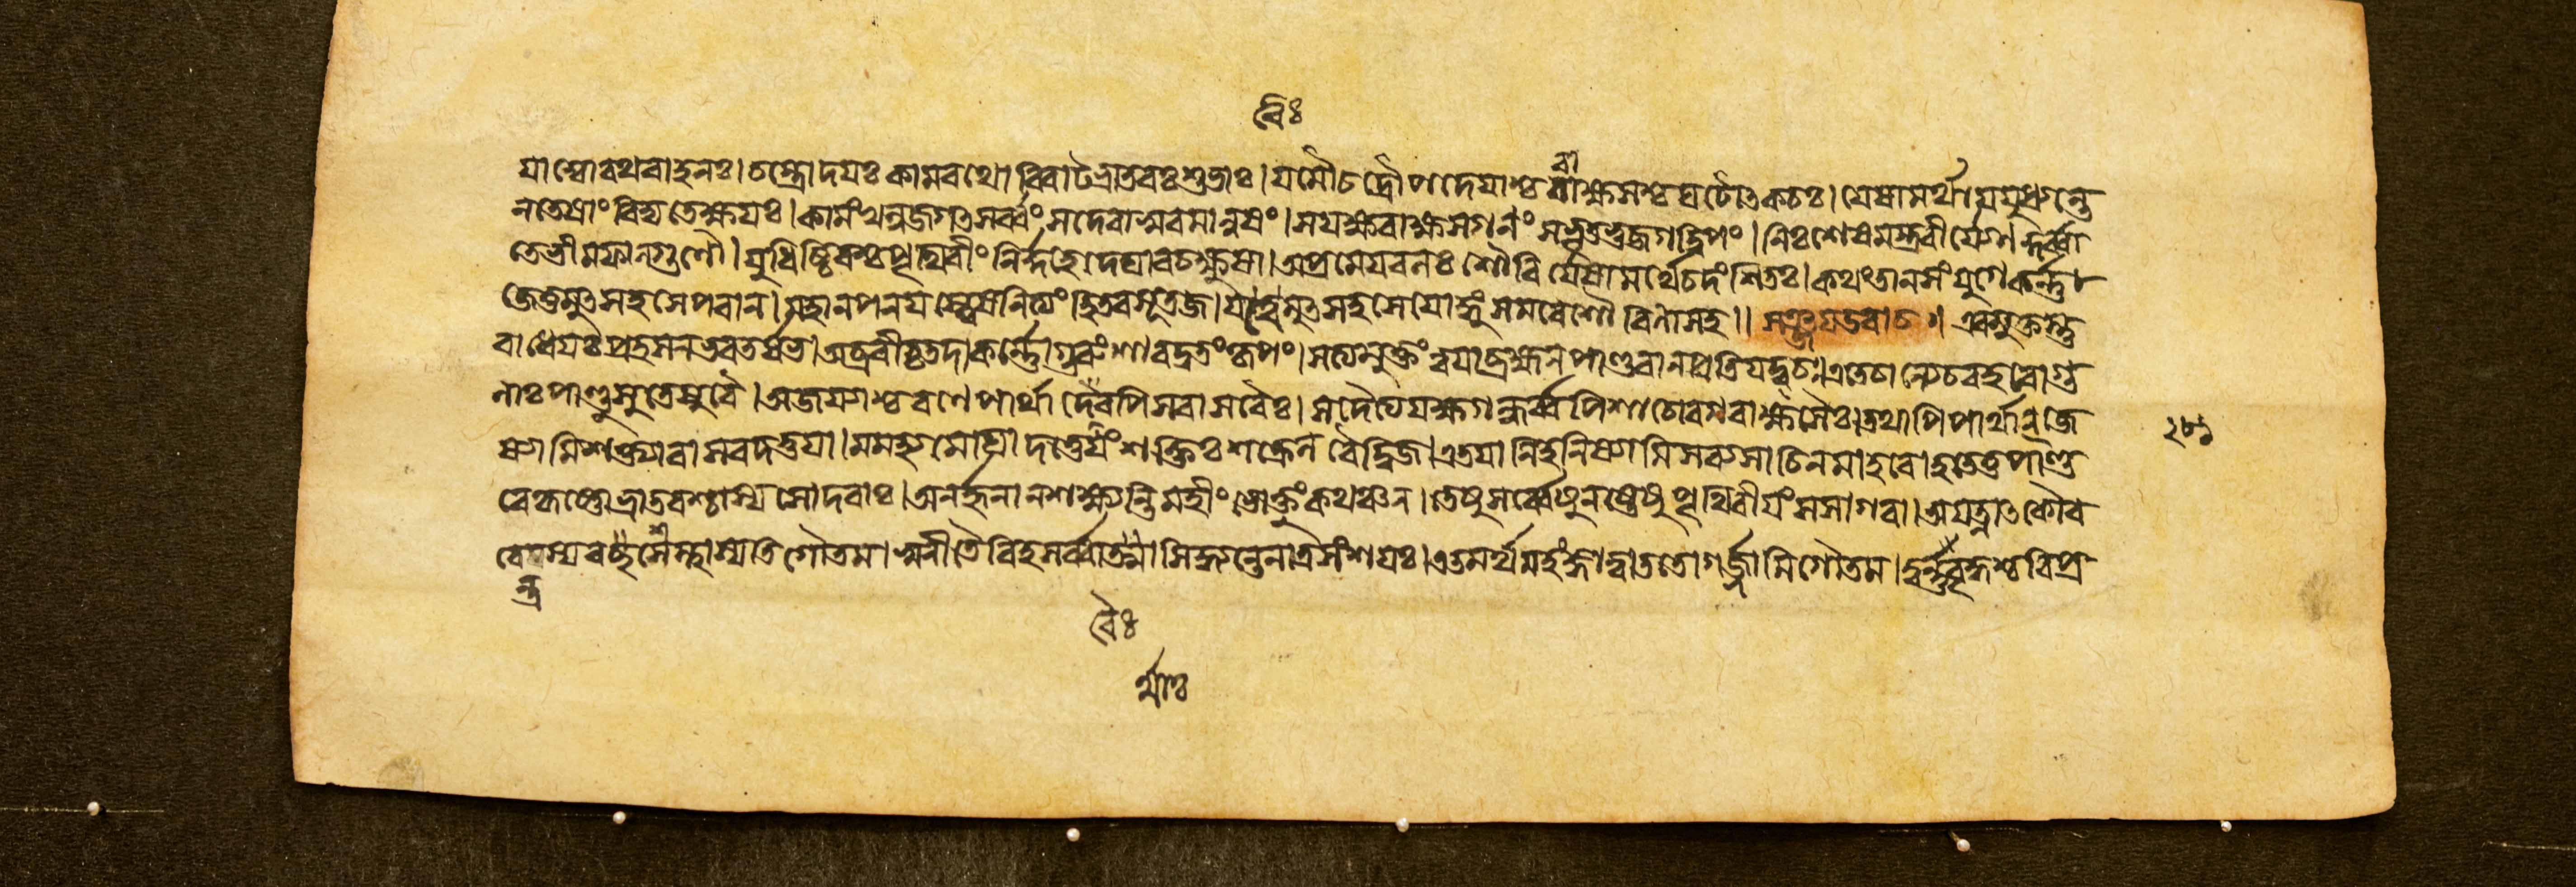 রিঃ
যাশ্বো রথবাহনঃ। চন্দ্রোদয়ঃ কামরথো বিরাটভ্রাতরঃ শুভাঃ। যমৌ চ দ্রৌপদেয়াশ্চ রাক্ষসশ্চ ঘটোৎকচঃ। যেষামর্থায় যুধ্যন্তে
ন তেষাং বিদ্যতে ক্ষয়ঃ। কামং খলু জগৎ সর্ব্বং সদেবাসুরমানুষং। সযক্ষরাক্ষসগনং সভূতভুজগদ্বিপং। নিঃশেষমস্ত্রবীর্যেণ
তে ভীমফাল্গুণৌ। যুধিষ্ঠিরশ্চ পৃথিবীং নির্দ্দহেদ্ঘোরচক্ষুষা। অপ্রমেয়বলঃ শৌরির্যেষামর্থে চ দংশিতঃ। কথং তান্ সংযুগে কর্ন্ন
জেতুমুৎসহসে পরান। মহানপনয়স্ত্বেষ নিত্যং হি তব সূতজ। যস্ত্বমুৎসহসে যোদ্ধুং সমরে শৌরিনা সহ।। সঞ্জয় উবাচ। এবমুক্তস্তু
রাধেয়ঃ প্রহসন ভরতর্ষভ। অব্রবীচ্চ তদা কর্ন্নো গুরুং শারদ্বতং কৃপং। সত্যমুক্তং ত্বয়া ব্রহ্মন পাণ্ডবান প্রতি যদ্বচঃ। এতে চান্যে চ বহবো গু
ণাঃ পাণ্ডুসুতেষু বৈ। অজয্যাশ্চ রণে পার্থা দেবৈরপি সবাসবৈঃ। সদৈত্যযক্ষগন্ধর্ব্বপিশাচোরগরাক্ষসৈঃ। তথাপি পার্থান জে
ষ্যামি শক্ত্যা বাসবদত্তয়া। মমহ্যমোঘা দত্তেয়ং শক্তিঃ শক্রেন বৈ দ্বিজ। এতয়া নিহনিষ্যামি সব্যসাচিনমাহবে। হতে তু পাণ্ড
বে কৃষ্ণো ভ্রাতরশ্চাস্য সোদরাঃ। অনর্জ্জুনা ন শক্ষ্যন্তি মহীং ভোক্তুং কথঞ্চন। তেষু সর্ব্বেষু নষ্টেষু পৃথিবীয়ং সসাগরা। অযত্নাৎ কৌর
বেয়স্য বশে স্থাস্যতি গৌতম। সুনীতৈরিহ সর্ব্বার্থাঃ সিদ্ধ্যন্তে নাত্র সংশয়ঃ। এতমর্থমহং জ্ঞাত্বা ততো গর্জ্জামি গৌতম। ত্বন্তু বৃদ্ধশ্চ বিপ্র
বৈঃ
র্থাঃ
২৮১